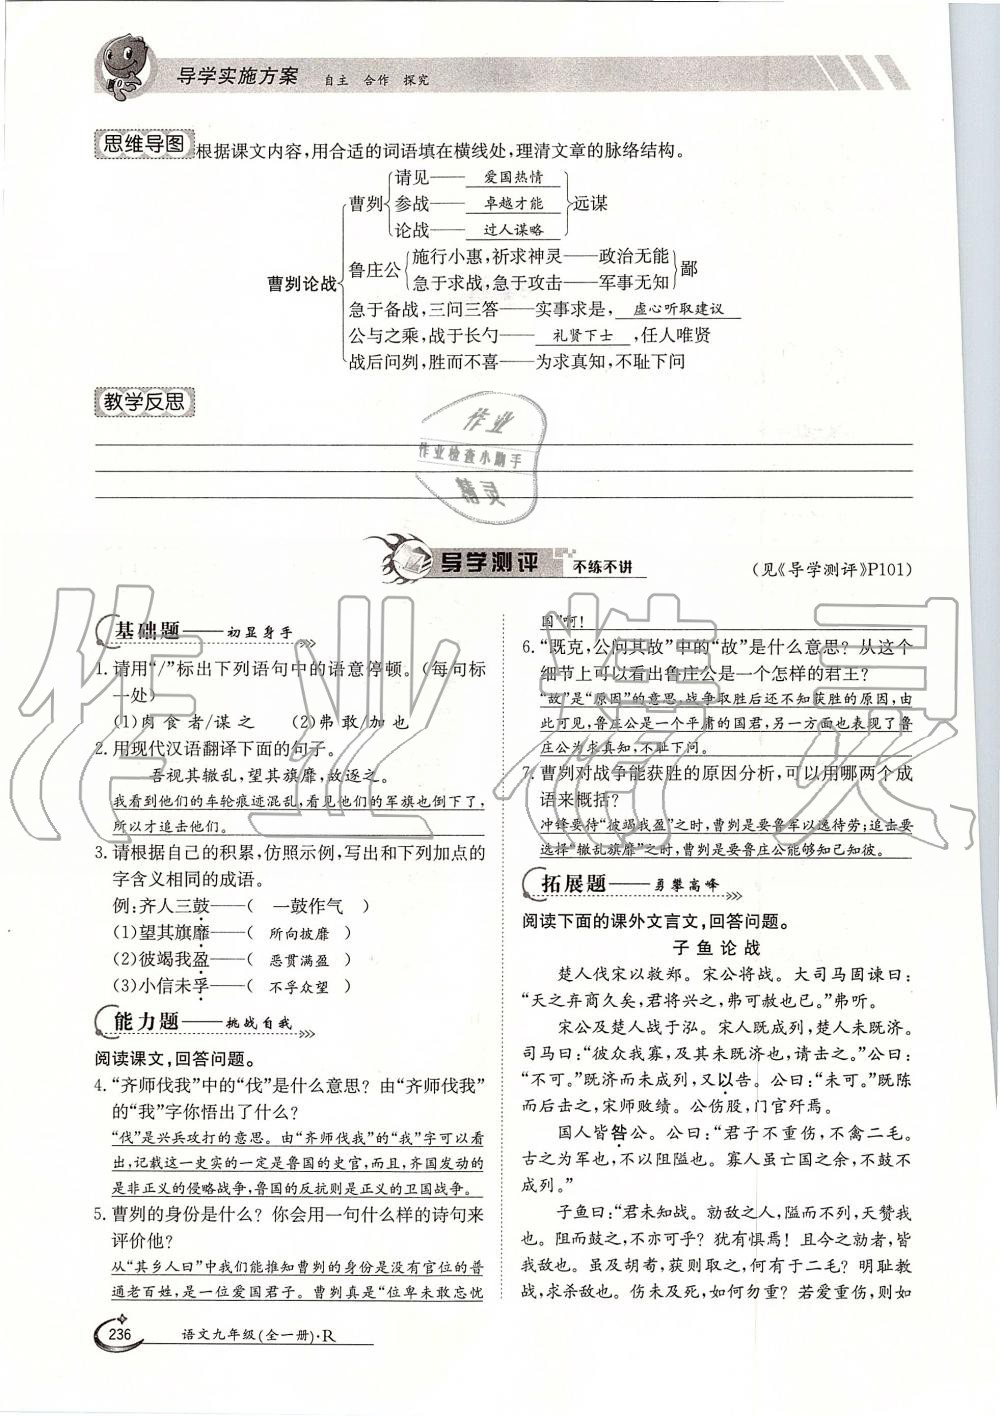 导学实施方案 自主 合作 探究
思维导图 根据课文内容,用合适的词语填在横线处,理清文章的脉络结构。
请见——爱国热情
曹刿 参战——卓越才能 远谋
论战——过人谋略
施行小惠,祈求神灵——政治无能
鲁庄公 鄙
曹刿论战 急于求战,急于攻击——军事无知
急于备战,三问三答——实事求是,虚心听取建议
公与之乘,战于长勺——礼贤下士,任人唯贤
战后问刿,胜而不喜——为求真知,不耻下问
教学反思
作业
作业检查小助手
精灵
导学测评 不练不讲 (见《导学测评》P101)
基础题——初显身手
1. 请用“/”标出下列语句中的语意停顿。(每句标
一处)
(1)肉食者/谋之 (2)弗敢/加也
2. 用现代汉语翻译下面的句子。
吾视其辙乱,望其旗靡,故逐之。
我看到他们的车轮痕迹混乱,看见他们的军旗也倒下了,
所以才追击他们。
3. 请根据自己的积累,仿照示例,写出和下列加点的
字含义相同的成语。
例:齐人三鼓——( 一鼓作气 )
(1)望其旗靡——( 所向披靡 )
(2)彼竭我盈——( 恶贯满盈 )
(3)小信未孚——( 不孚众望 )
能力题——挑战自我
阅读课文,回答问题。
4. “齐师伐我”中的“伐”是什么意思?由“齐师伐我”
的“我”字你悟出了什么?
“伐”是兴兵攻打的意思。由“齐师伐我”的“我”字可以看
出,记载这一史实的一定是鲁国的史官,而且,齐国发动的
是非正义的侵略战争,鲁国的反抗则是正义的卫国战争。
5. 曹刿的身份是什么?你会用一句什么样的诗句来
评价他?
从“其乡人曰”中我们能推知曹刿的身份是没有官位的普
通老百姓,是一位爱国君子。曹刿真是“位卑未敢忘忧
国”啊!
6. “既克,公问其故”中的“故”是什么意思?从这个
细节上可以看出鲁庄公是一个怎样的君王?
“故”是“原因”的意思,战争取胜后还不知获胜的原因,由
此可见,鲁庄公是一个平庸的国君,另一方面也表现了鲁
庄公为求真知,不耻下问。
7. 曹刿对战争能获胜的原因分析,可以用哪两个成
语来概括?
冲锋要待“彼竭我盈”之时,曹刿是要鲁军以逸待劳;追击要
选择“辙乱旗靡”之时,曹刿是要鲁庄公能够知己知彼。
拓展题——勇攀高峰
阅读下面的课外文言文,回答问题。
子鱼论战
楚人伐宋以救郑。宋公将战。大司马固谏曰:
“天之弃商久矣,君将兴之,弗可赦也已。”弗听。
宋公及楚人战于泓。宋人既成列,楚人未既济。
司马曰:“彼众我寡,及其未既济也,请击之。”公曰:
“不可。”既济而未成列,又以告。公曰:“未可。”既陈
而后击之,宋师败绩。公伤股,门官歼焉。
国人皆咎公。公曰:“君子不重伤,不禽二毛。
古之为军也,不以阻隘也。寡人虽亡国之余,不鼓不
成列。”
子鱼曰:“君未知战。勍敌之人,隘而不列,天赞我
也。阻而鼓之,不亦可乎?犹有惧焉!且今之勍者,皆
我敌也。虽及胡耇,获则取之,何有于二毛?明耻教
战,求杀敌也。伤未及死,如何勿重?若爱重伤,则如
236 语文九年级(全一册)·R
作业精灵